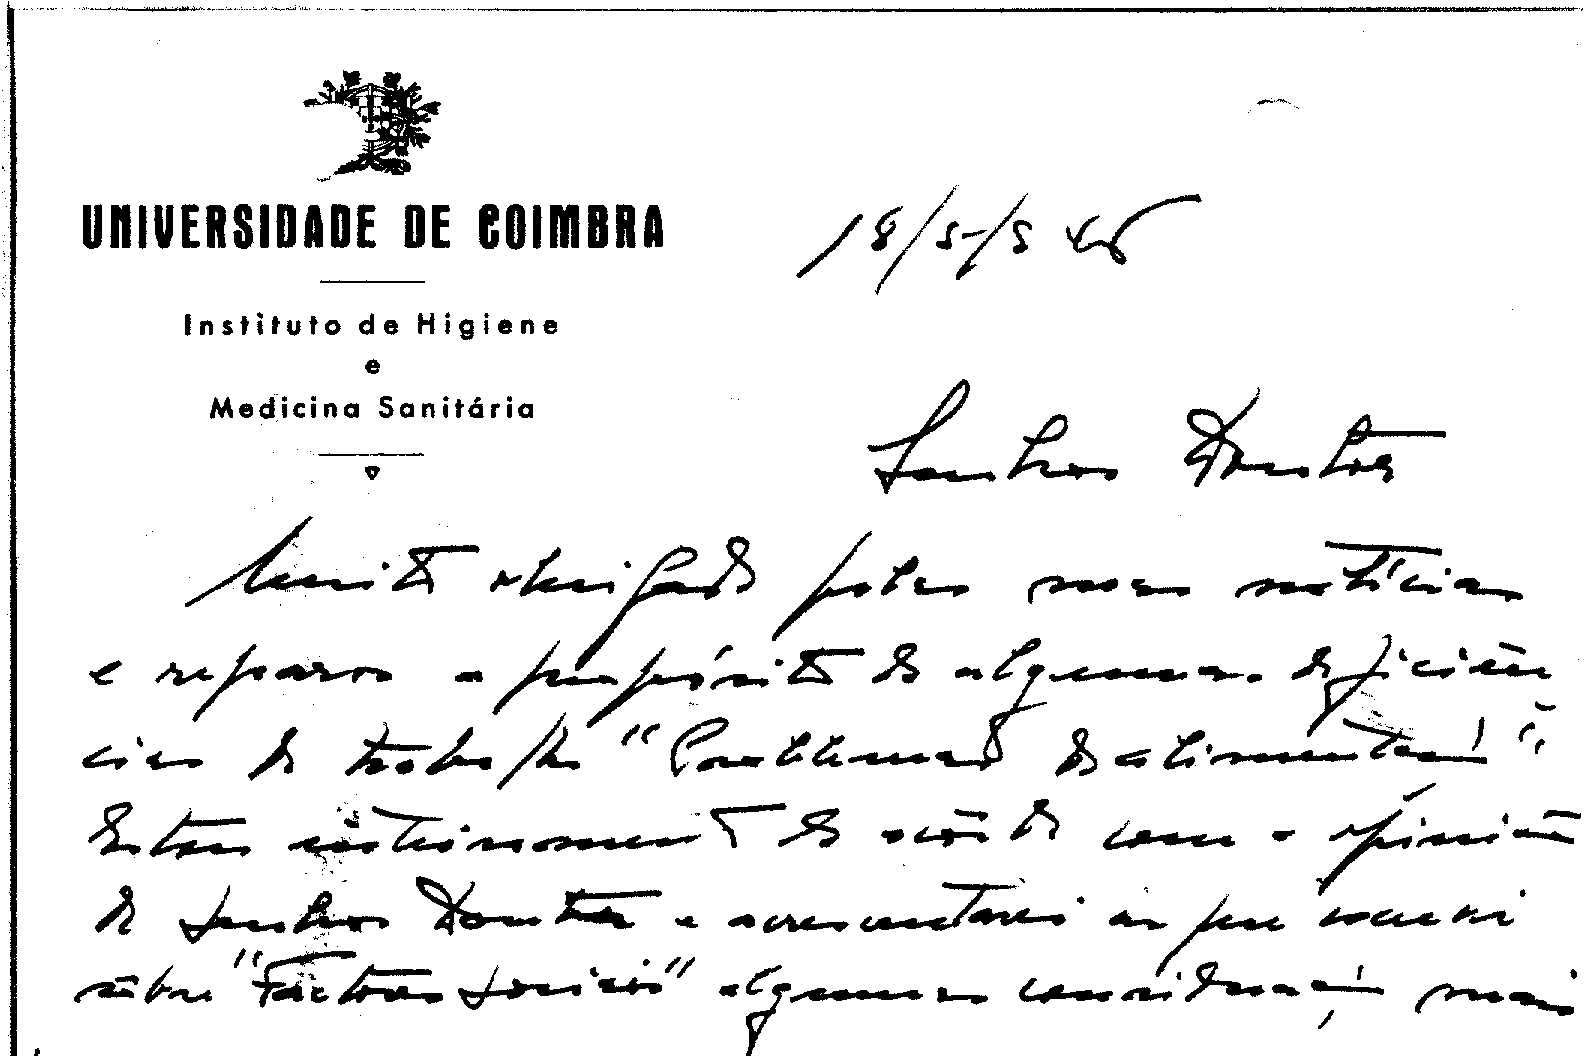 UNIVERSIDADE DE COIMBRA
Instituto de Higiene
e
Medicina Sanitária
18/5/
Senhor Doutor
Muito obrigado pelas suas notícias
e reparos a propósito de algumas deficiên
cias do trabalho "Problemas de alimentação".
Estou inteiramente de acôrdo com a opinião
do Senhor Doutor e acrescentarei ao que escrevi
sôbre "Factores sociais" algumas considerações mais